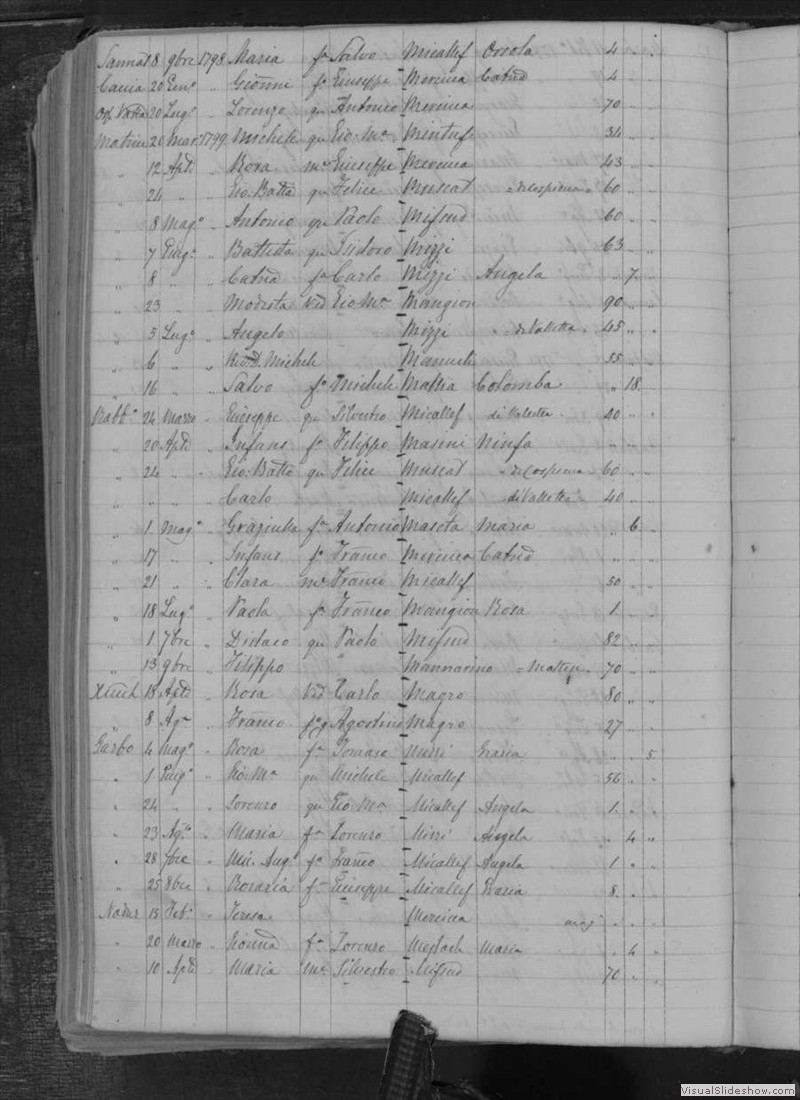 Sannat 8 9bre 1798 Maria fa Salvo Micallef Orsola 4 " .
Cauia 20 Genn. " Gioñni fo Giuseppe Mercieca Catnã 4 " .
20 Lugo " Lorenzo qu Antonio Mercieca 70 " "
Matrice 20 Mar. 1799 Michele qu Gio: Ma Mintuf 34 " "
" 12 Aple " Rosa me Giuseppe Mercieca 43 " "
" 24 " " Gio. Batta qu Felice Muscat 60 " "
" 8 Mago " Antonio qu Paolo Mifsud 60 " "
" 7 Giugo " Battista qu Isidoro Mizzi 63 " "
" 8 " " Catnã fa Carlo Mizzi Angela " 7 "
" 23 " " Modesta Vid Gio Ma Mangion 90 " "
" 5 Lugo " Angelo Mizzi = di Valletta = 45 " "
" 6 " " Revd. Michele Manueli 55 " "
" 16 " " Salvo fo Michele Mattia Colomba " 18 "
Rabbo 24 Marzo " Giuseppe qu Silvestro Micallef di Valletta 40 " "
" 20 Aple " Infans fo Filippo Masini Ninfa " " "
" 24 " " Gio: Batta qu Felice Muscat = di Cospicua = 60 " "
" " " " Carlo Micallef di Valletta 40 " "
" 1 Mago " Graziulla fa Antonio Mascta Maria " 6 "
" 17 " " Infans fo Franco Mercieca Catnã " " "
" 21 " " Clara me Franco Micallef 50 " "
" 18 Lugo " Paola fa Franco Mangion Rosa 1 " "
" 1 7bre " Didaco qu Paolo Mifsud 82 " "
" 13 9bre " Filippo " Mannarino = Maltese = 70 " "
18 Aple " Rosa Vid Carlo Magro 80 " "
" 8 Ago " Franco Agostino Magro 27 " "
Garbo 4 Mago " Rosa fa Tomaso Mizzi Grazia " " 5
" 1 Giugo " Gio: Ma qu Michele Micallef 56 " "
" 24 " " Lorenzo qu Gio Ma Micallef Angela 1 " "
" 23 Ago " Maria fa Lorenzo Mizzi Angela " 4 "
" 28 7bre " Mic. Ango fo Franco Micallef Angela 1 " "
" 25 8bre " Rosaria fa Giuseppe Micallef Grazia 8 " "
Nadur 15 Feb. " Teresa Mercieca mag " " "
" 20 Marzo " Gionna fa Lorenzo Meylach Maria " 4 "
" 10 Aple " Maria me Silvestro Mifsud 70 " "
VisualSlideshow.com